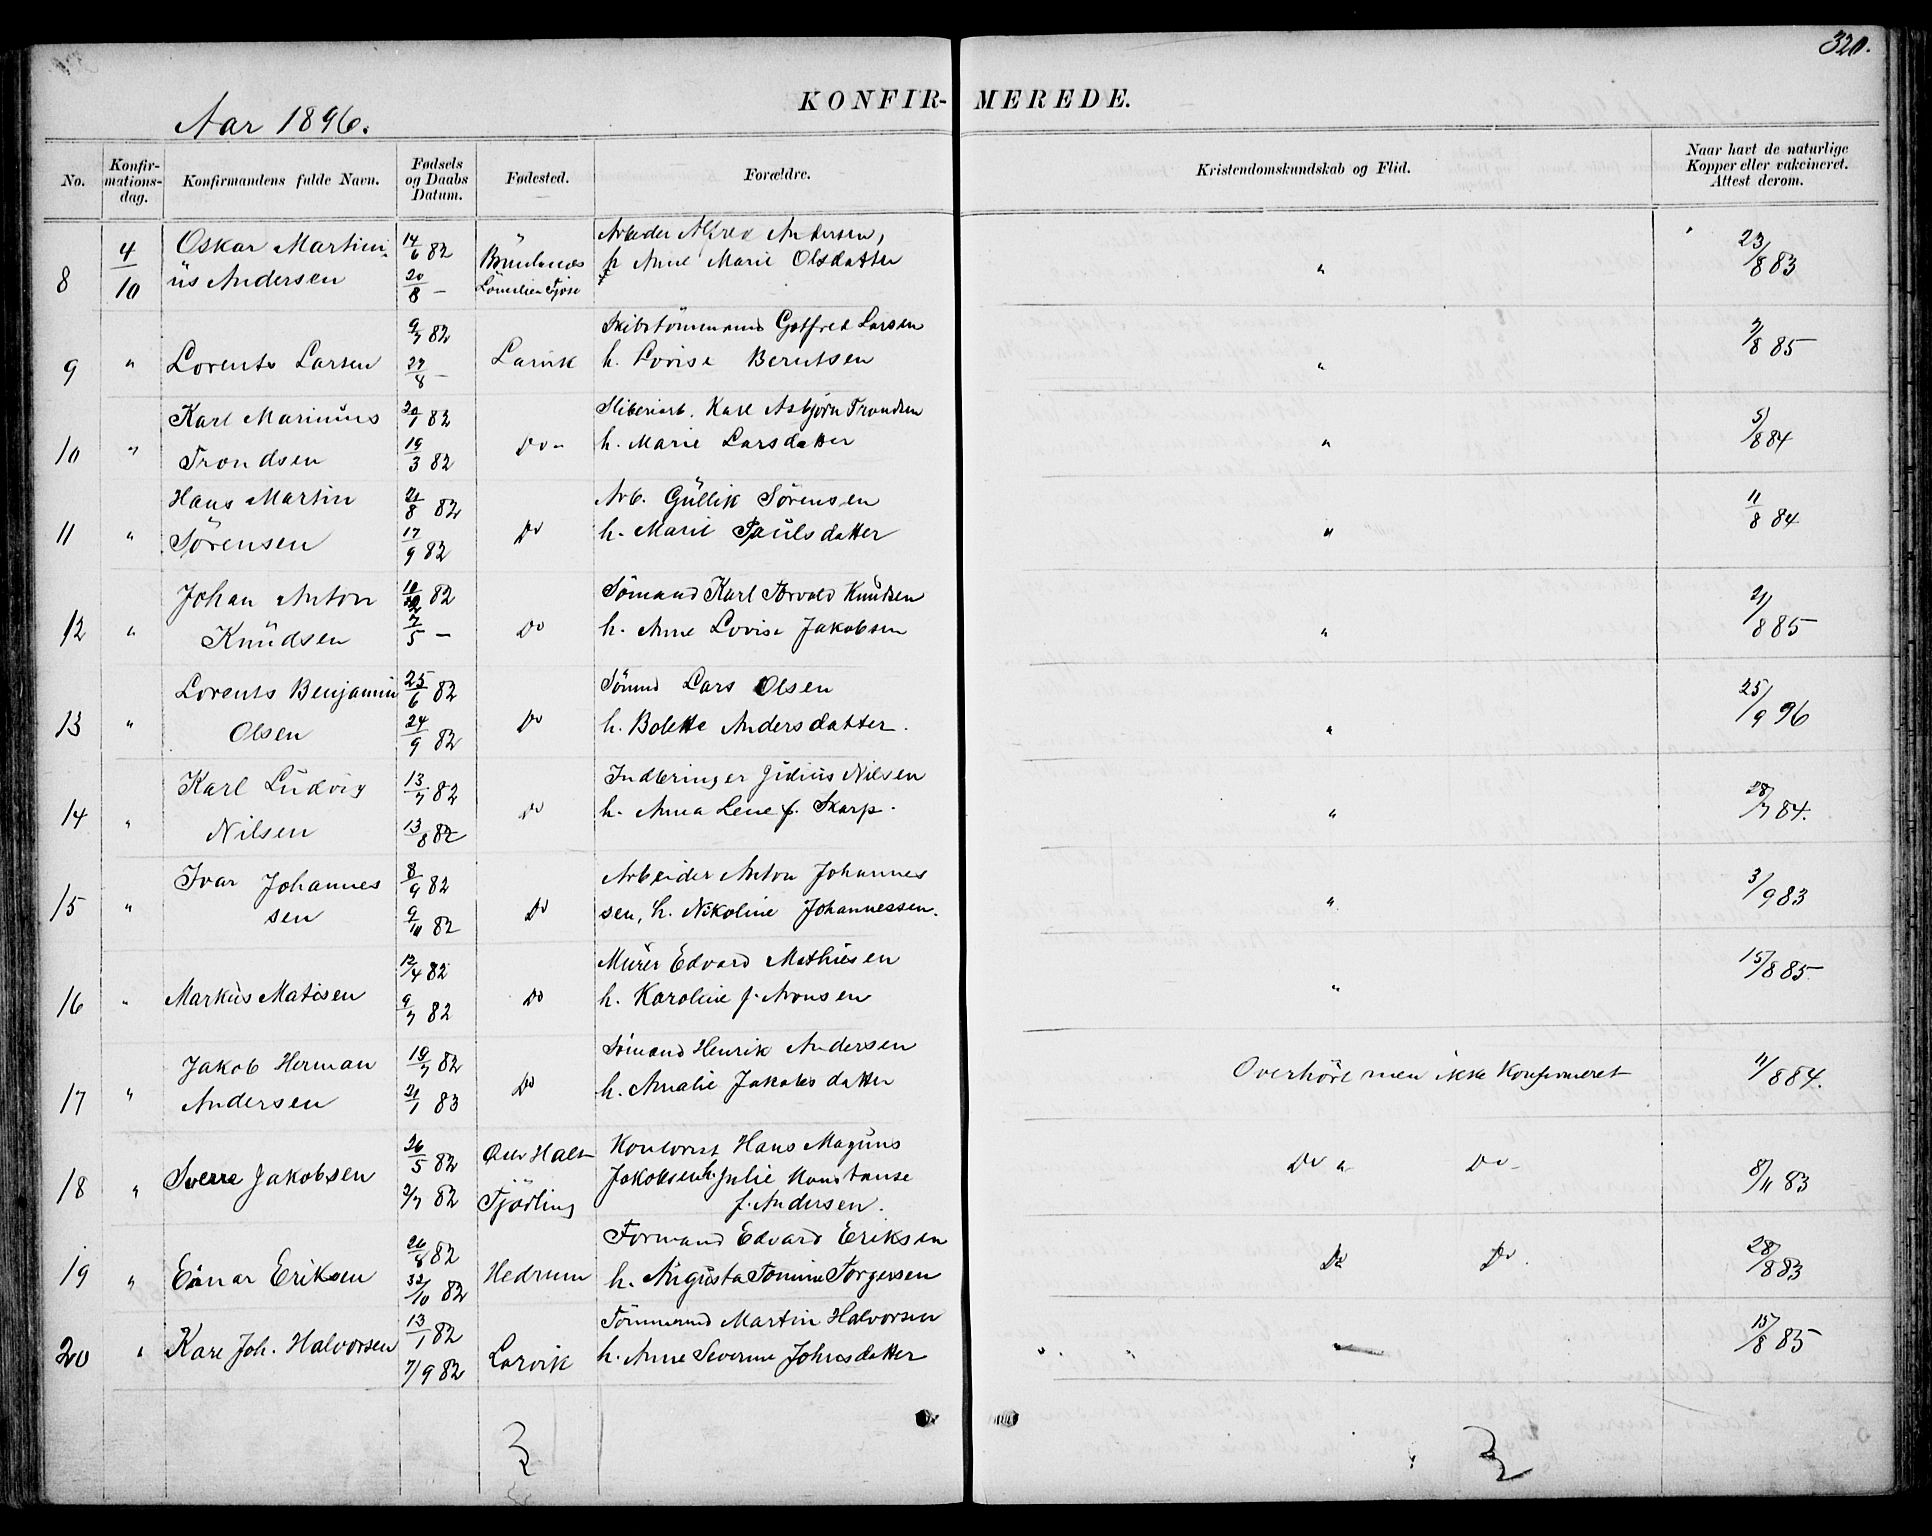 320.
KONFIR- MEREDE.
Aar 1896.
No. Konfir-mations-dag. Konfirmandens fulde Navn. Fødsels og Daabs Datum. Fødested. Forældre. Kristendomskundskab og Flid. Naar havt de naturlige Kopper eller vakcineret. Attest derom.
4/10 Oskar Martini- 14/6 82 Arbeider Alfred Andersen, 23/8 83
8 üs Andersen 20/8 – Anne Marie Olsdatter "
9/7 82 Skibstömmermand Gotfred Larsen 7/8 85
9 " Lorents Larsen 27/8 – Larvik h. Lovise Berntsen "
Karl Marinius 20/1 82 Sliberiarb. Karl Asbjörn Trondsen 5/8 84
10 " Trondsen 19/3 82 Do h. Marie Larsdatter "
Hans Martin 21/8 82 Arb. Güllik Sörensen 11/8 84
11 " Sörensen 17/9 82 Do h. Marie Paulsdatter "
Johan Anton 82 Sömand Karl Torvald Knüdsen 21/8 85
12 " Knüdsen 7/5 – Do h. Anne Lovise Jakobsen "
Lorents Benjamin 25/6 82 Sömd Lars Olsen 25/9 96
13 " Olsen 24/9 82 Do h. Bolette Andersdatter. "
Karl Ludvig 13/7 82 Indbringer Gidius Nilsen 28/7 84.
14 " Nilsen 13/8 82 Do h. Anna Lene f. Skarp. "
Ivar Johannes 8/9 82 Arbeider Anton Johannes 3/9 83
15 " sen 9/10 82 Do sen, h. Nikoline Johannessen. "
12/4 82 Mürer Edvard Mathiesen 15/8 85
16 " Markus Matisen 9/7 82 Do h. Karoline f. Aronsen "
Jakob Herman 19/7 82 Sömand Henrik Andersen Overhört men ikke Konfirmeret 11/8 84.
17 " Andersen 21/1 83 Do h. Amalie Jakobsdatter
26/5 82 Kontorist Hans Magnus Do " Do
18 " Sverre Jakobsen 2/7 82 Tjödling Jakobsen h. Julie Konstanse 8/11 83
f. Andersen.
26/8 82 Formand Edvard Eriksen Do Do. 28/8 83
19 " Einar Eriksen 82 Hedrum h. Augusta Tomine Torgersen
13/1 82 Tömmermd Martin Halvorsen 15/8 85
20 " Karl Joh. Halvorsen 7/9 82 Larvik h. Anne Severine Johnsdatter " "